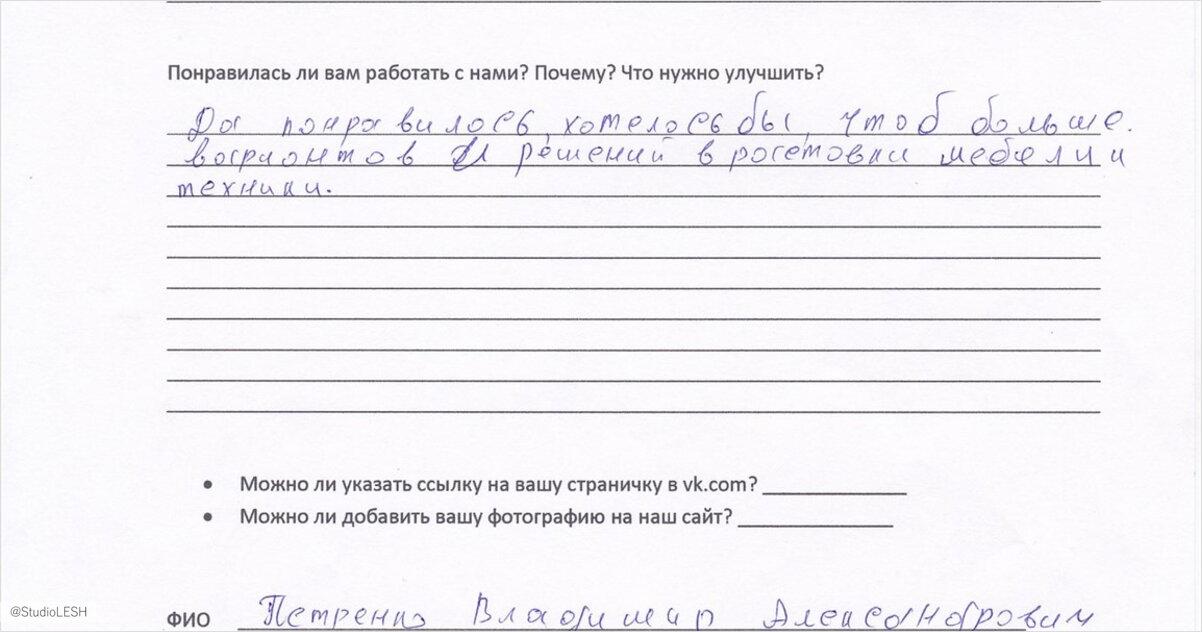 Понравилась ли вам работать с нами? Почему? Что нужно улучшить?
Да понравилось, хотелось бы, чтоб больше.
вариантов и решений в росстовки мебели и
техники.
• Можно ли указать ссылку на вашу страничку в vk.com? ____________
• Можно ли добавить вашу фотографию на наш сайт? ____________
@StudioLESH
ФИО Петренко Владимир Александрович